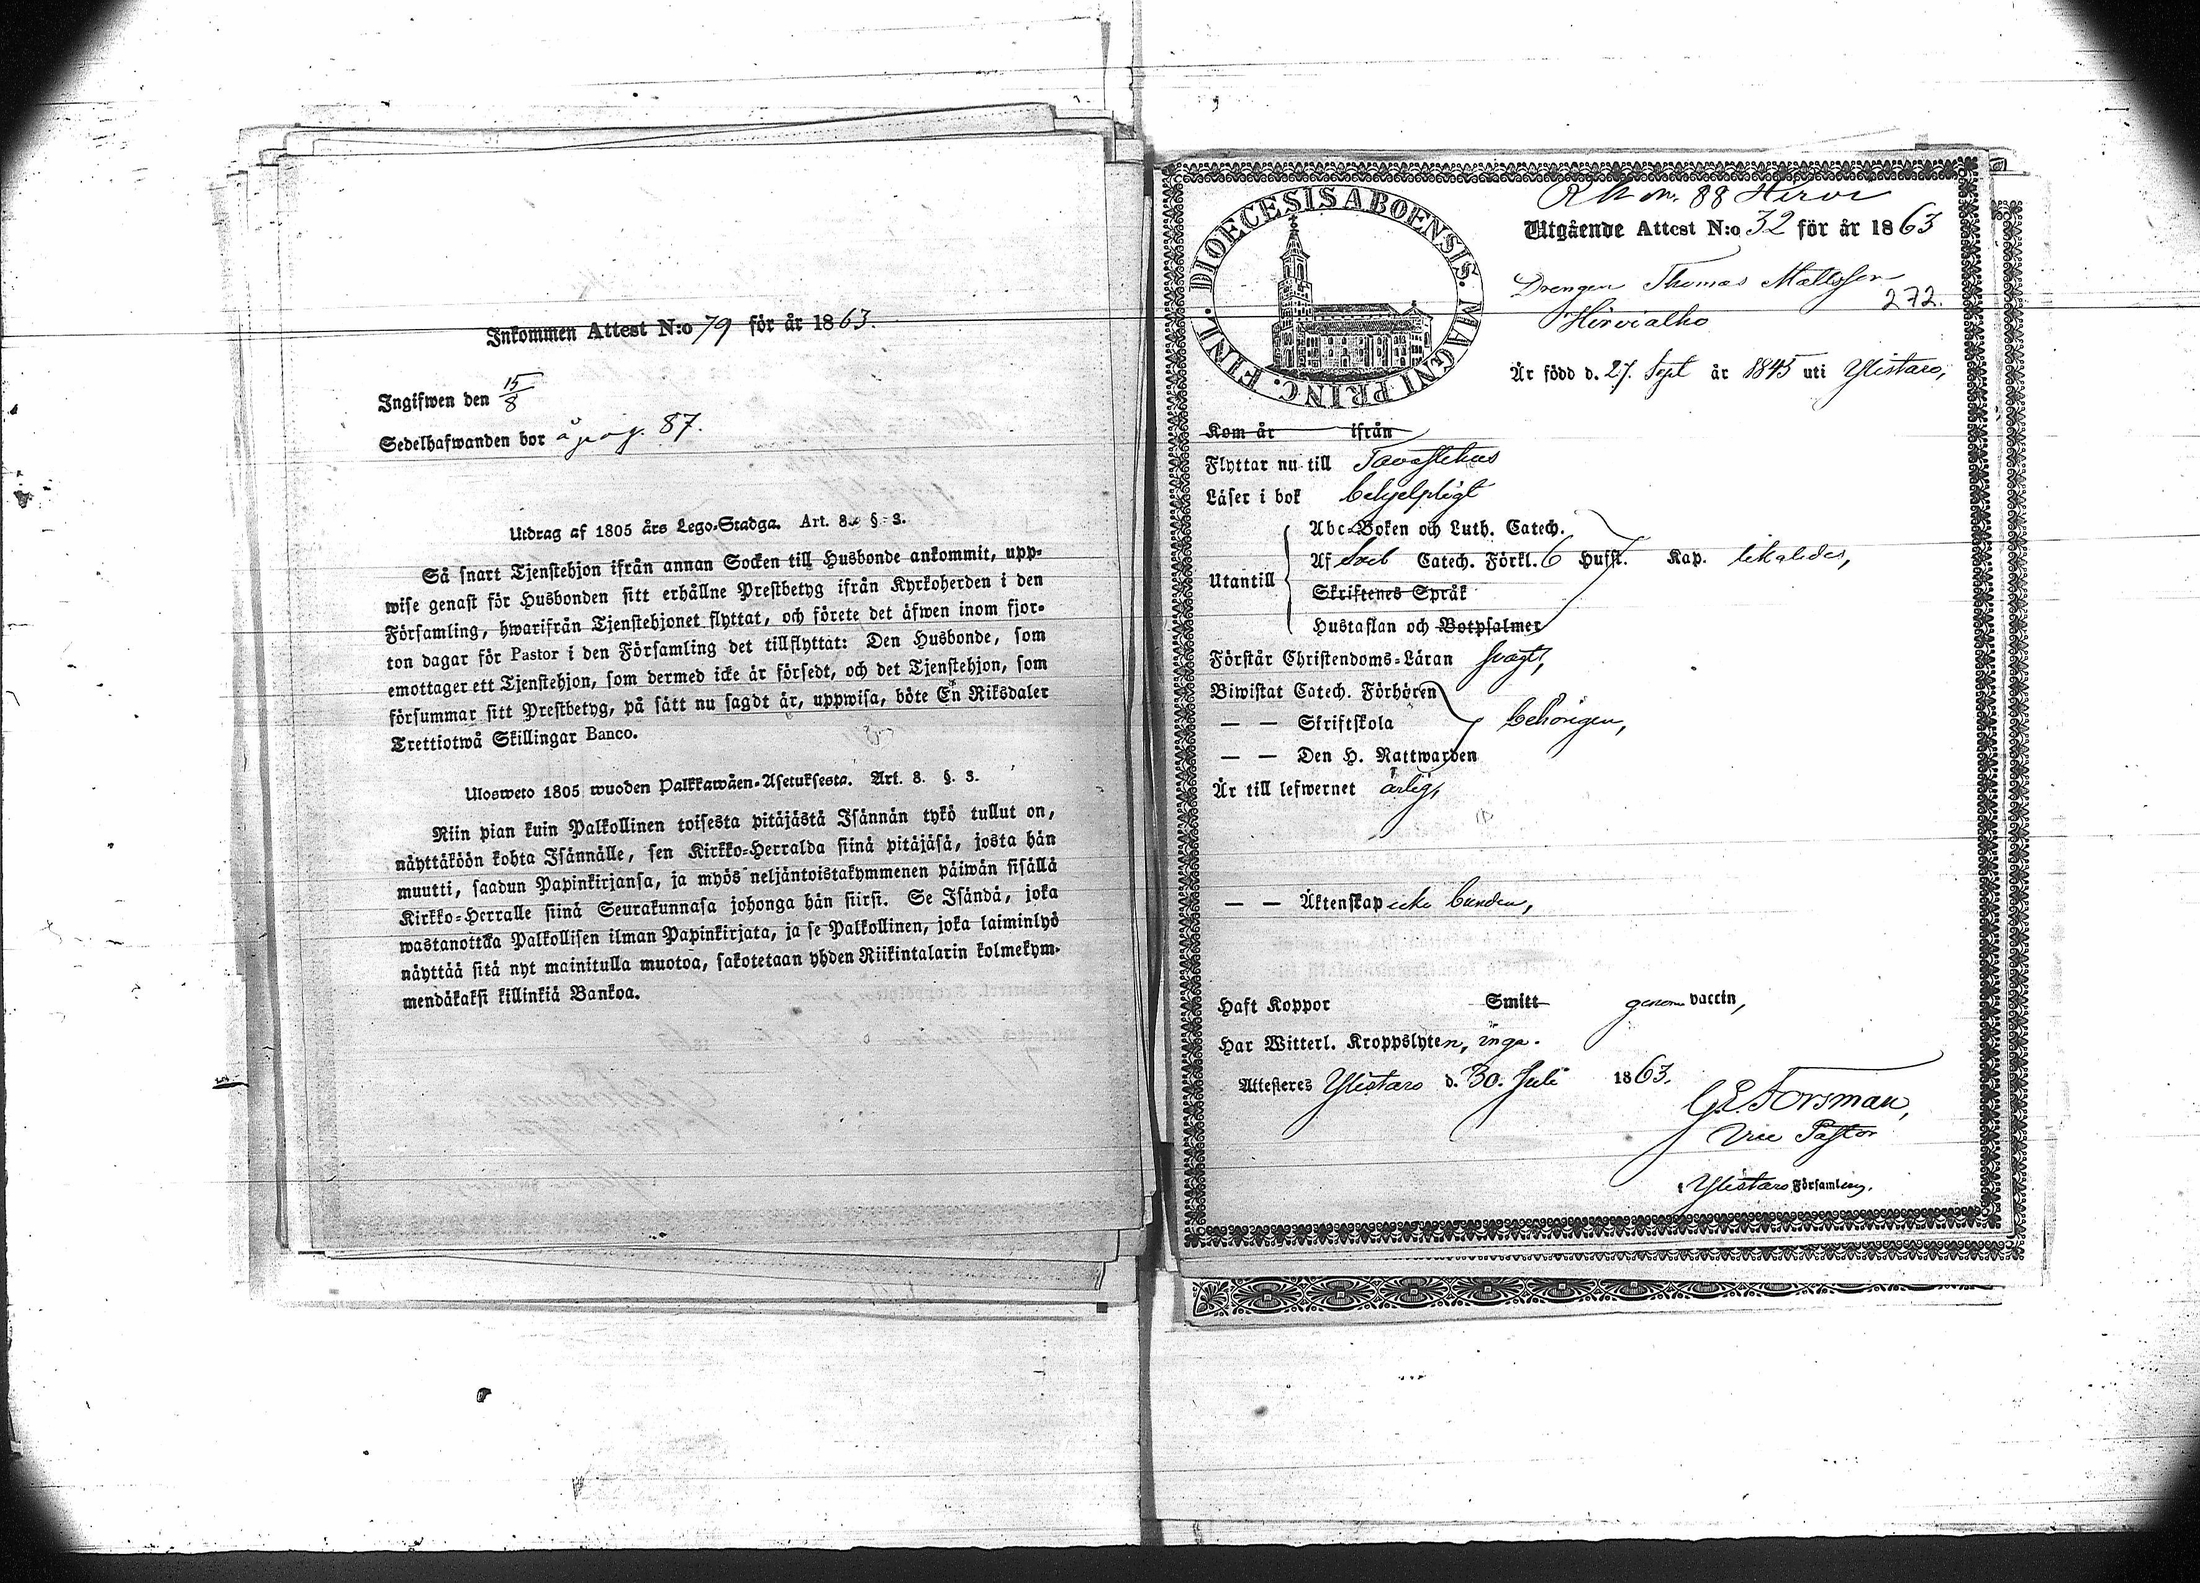 Inkommen Attest N:o 79 för år 1863.
Ingifwen den 15/8
Sedelhafwanden bor å pag. 87.
Utdrag af 1805 års Lego-Stadga. Art. 8. § 3.
Så snart Tjenstehjon ifrån annan Socken till Husbonde ankommit, upp-
wise genast för Husbonden sitt erhållne Prestbetyg ifrån Kyrkoherden i den
Församling, hwarifrån Tjenstehjonet flyttat, och förete det äfwen inom fjor-
ton dagar för Pastor i den Församling det tillflyttat: Den Husbonde, som
emottager ett Tjenstehjon, som dermed icke är försedt, och det Tjenstehjon, som
försummar sitt Prestbetyg, på sätt nu sagdt är, uppwisa, böte En Riksdaler
Trettiotwå Skillingar Banco.
Ulosweto 1805 wuoden Palkkawäen-Asetuksesta. Art. 8. §. 3.
Niin pian kuin Palkollinen toisesta pitäjästä Isännän tykö tullut on,
näyttäköön kohta Isännälle, sen Kirkko-Herralda siinä pitäjäsä, josta hän
muutti, saadun Papinkirjansa, ja myös neljäntoistakymmenen päiwän sisällä
Kirkko-Herralle siinä Seurakunnasa johonga hän siirsi. Se Isändä, joka
wastanottaa Palkollisen ilman Papinkirjata, ja se Palkollinen, joka laiminlyö
näyttää sitä nyt mainitulla muotoa, sakotetaan yhden Riikintalarin kolmekym-
mendäkaksi killinkiä Bankoa.
DIOECESIS ABOENSIS. MAGNI PRINC. FINL.
88 Hirvi
Utgående Attest N:o 32 för år 1863
Drengen Thomas Mattsson
272.
Hirvialho
Är född d. 27. Sept år 1845 uti Ylistaro,
Kom år ifrån
Flyttar nu till Tavastehus
Läser i bok behjelpligt
Abc-Boken och Luth. Catech.
Utantill Af Catech. Förkl. 6 Husst. Kap. likaledes,
Skriftenes Språk
Hustaflan och Botpsalmer
Förstår Christendoms-Läran svagt,
Biwistat Catech. Förhören
— — Skriftskola behörigen,
— — Den H. Nattwarden
Är till lefwernet ärlig,
— — Äktenskap icke bunden,
Haft Koppor Smitt genom vaccin,
Har Witterl. Kroppslyten, inga.
Attesteres Ylistaro d. 30. Juli 1863.
G. E. Forsman,
Vice Pastor
i Ylistaro Församling.